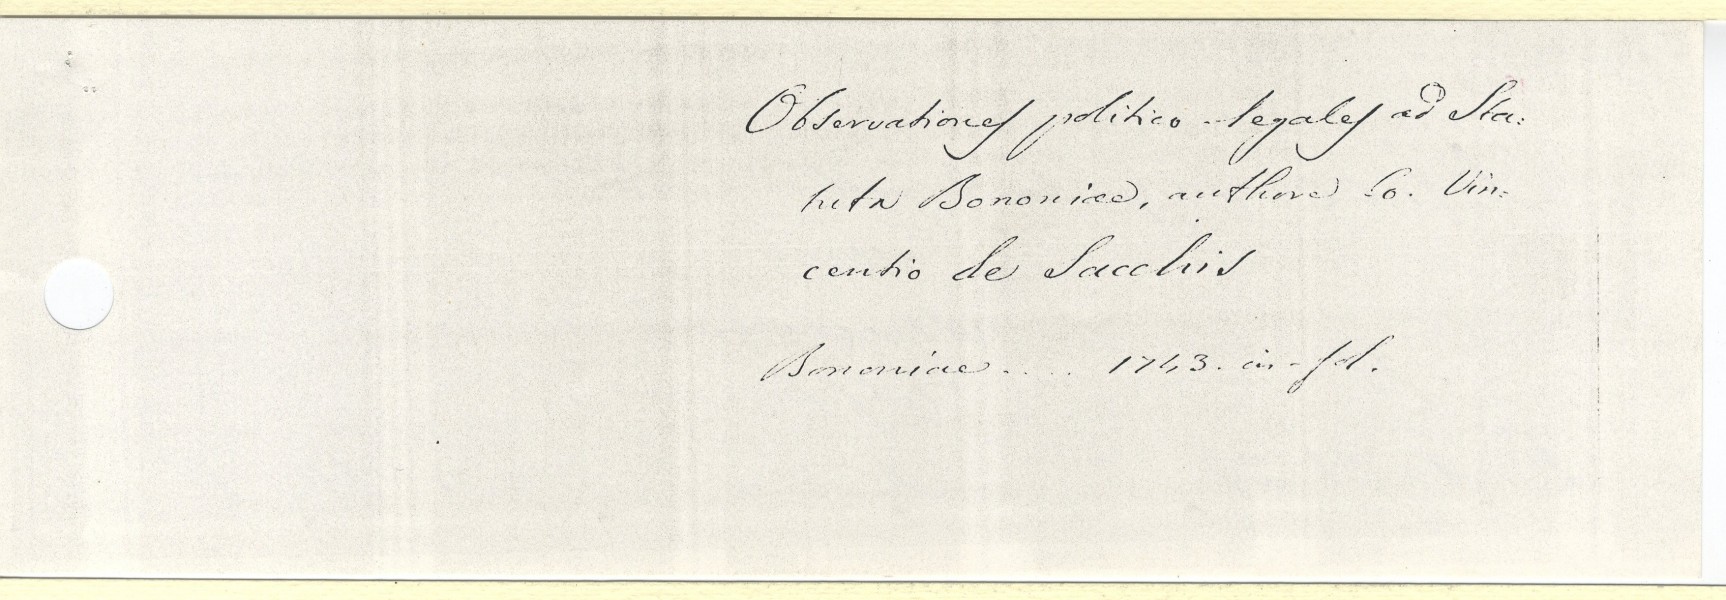 Observationes politico-legales ad Sta:
tuta Bononiae, authore Co. Vin:
centio de Sacchis
Bononiae .... 1743. in-fol.